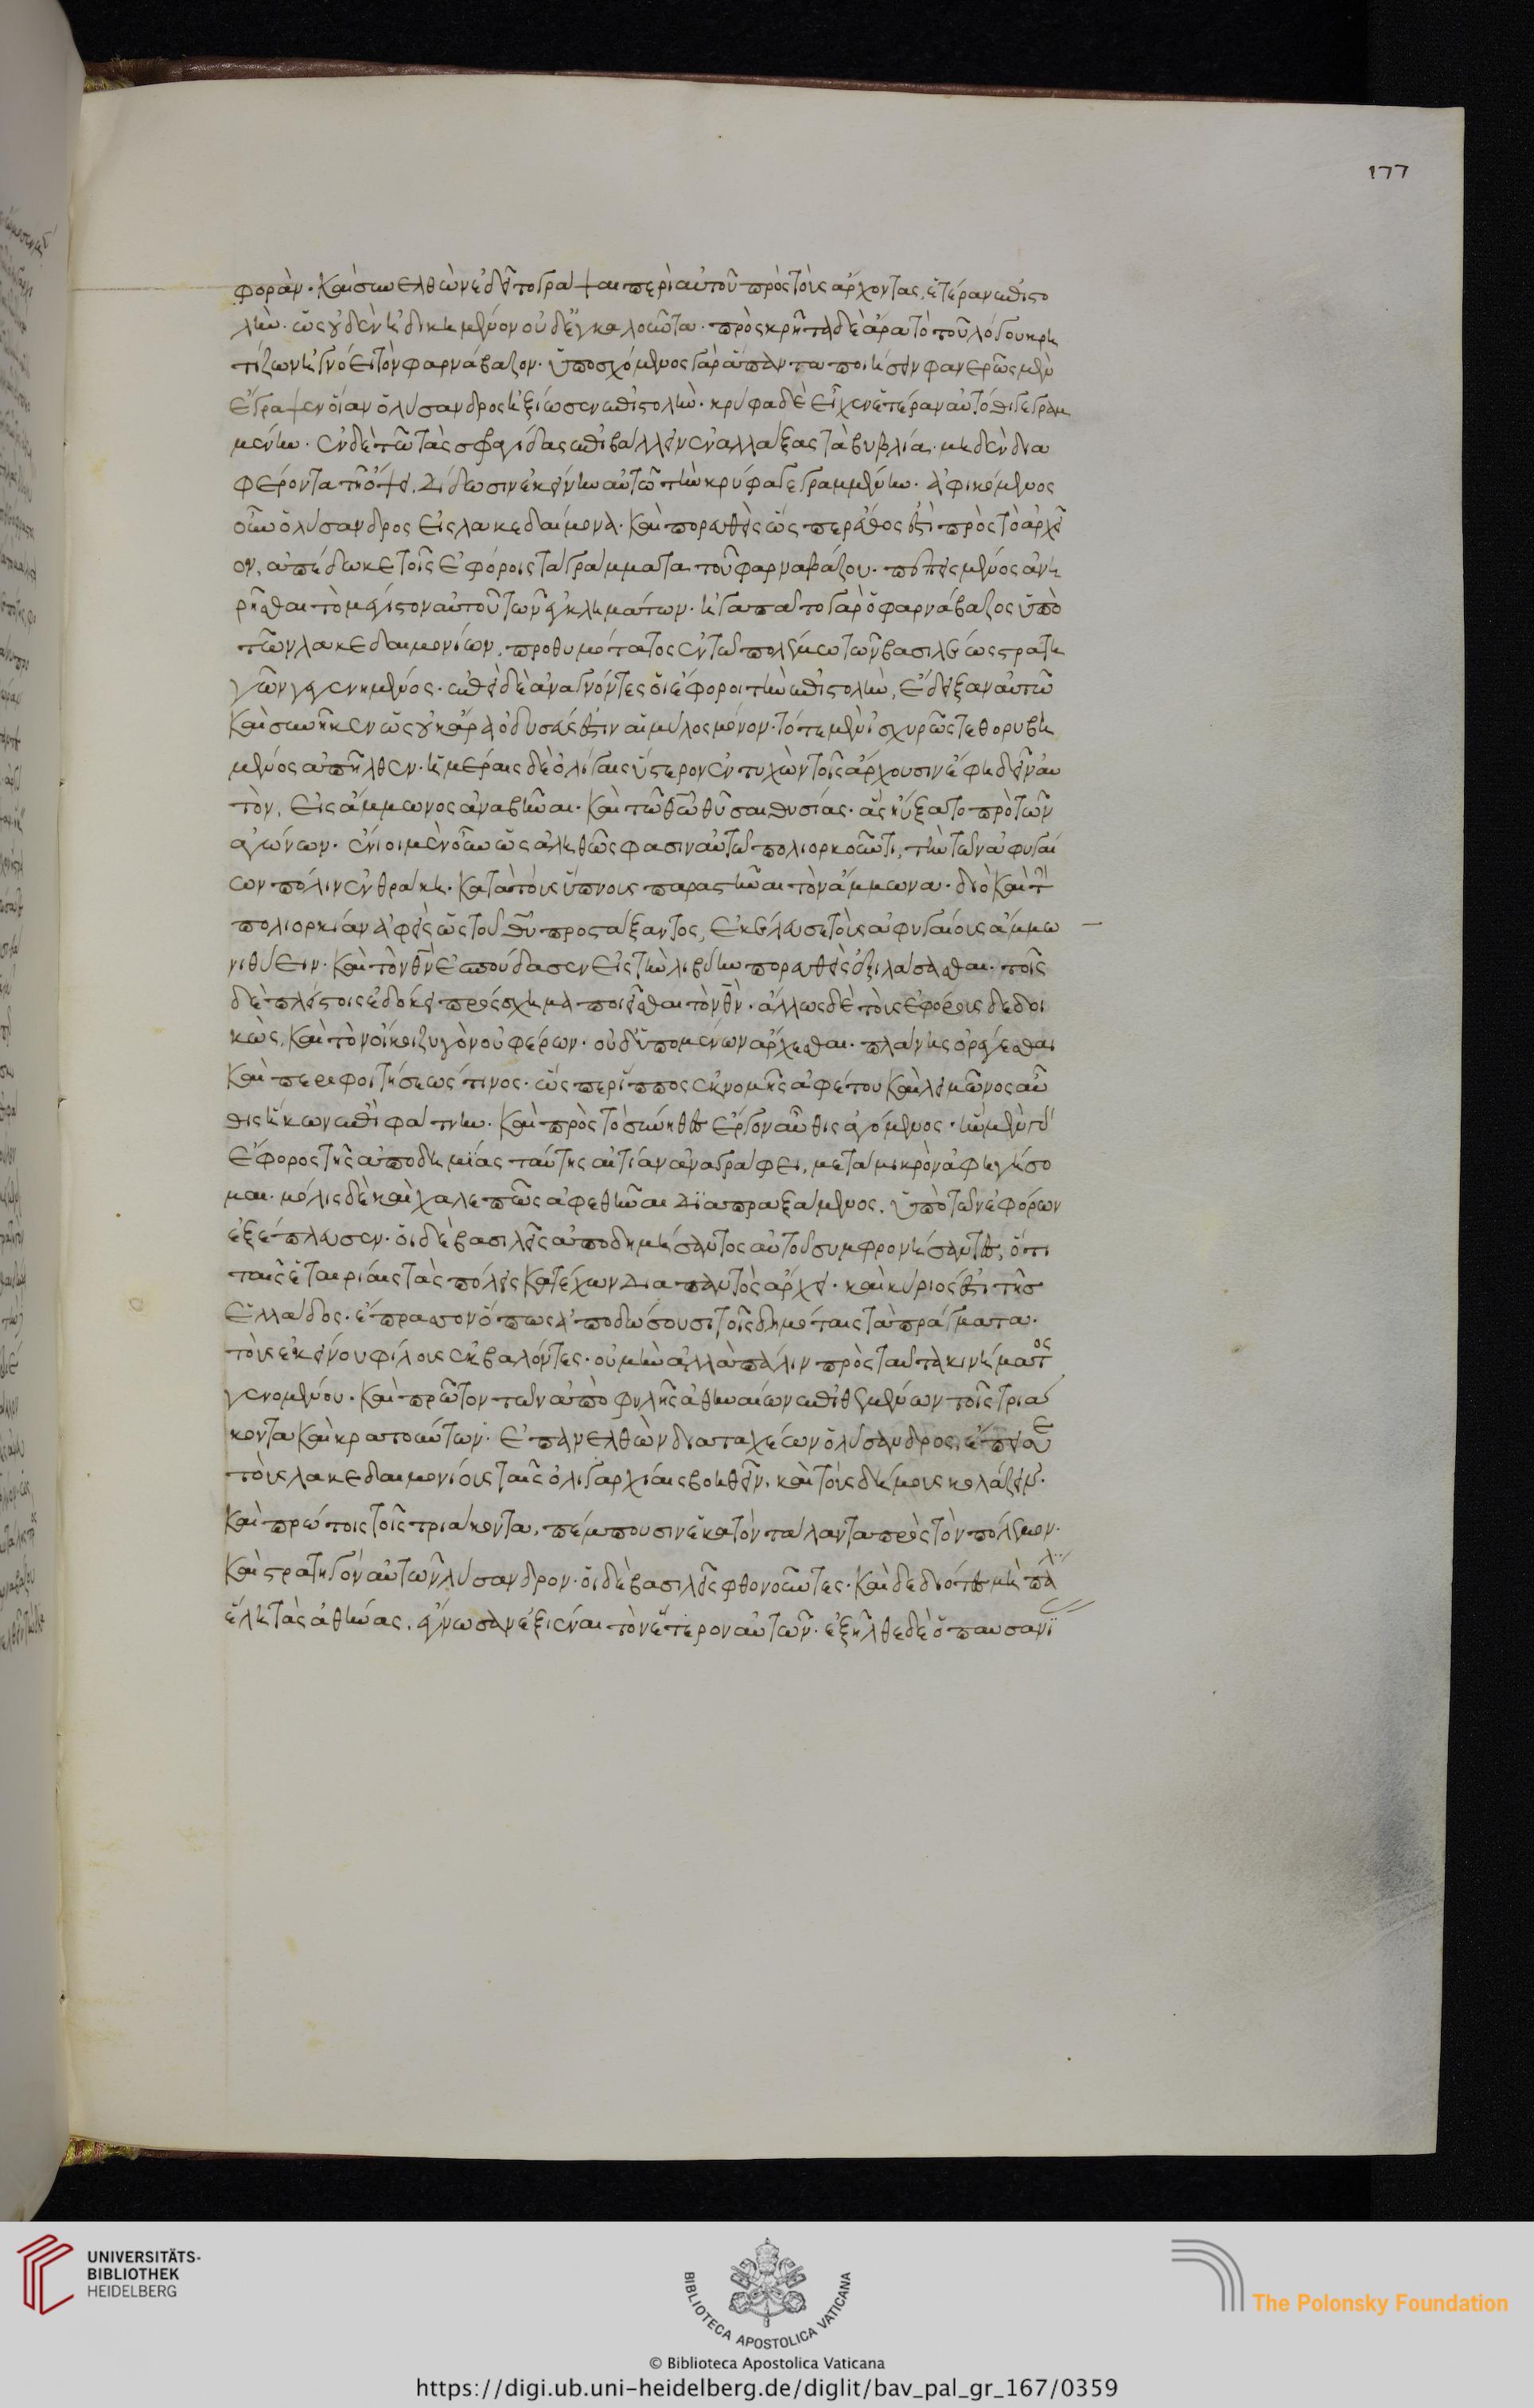 φοράν. καὶ συνελθὼν ἐδεῖτο γράψαι περὶ αὐτοῦ πρὸς τοὺς ἄρχοντας, ἑτέραν ἐπιστο
λὴν. ὡς οὐδὲν ἠδικημένον οὐδἐγκαλοῦντα. πρὸς κρῆτα δὲ ἄρα τὸ τοῦ λόγου κρη
τίζων ἠγνόει τὸν φαρνάβαζον. ὑποσχόμενος γὰρ ἅπαντα ποιήσειν φανερῶς μὲν
ἔγραψεν οἵαν ὁ λύσανδρος ἠξίωσεν ἐπιστολὴν. κρύφα δὲ εἶχεν ἑτέραν αὐτόθι γεγραμ
μένην. ἐν δὲ τῶ τὰς σφραγίδας ἐπιβάλλειν ἐναλλάξας τὰ βυβλία. μηδὲν δια
φέροντα τῆ ὄψει, δίδωσιν ἐκείνην αὐτῶ τὴν κρύφα γεγραμμένην. ἀφικόμενος
οὖν ὁ λύσανδρος εἰς λακεδαίμονα. καὶ πορευθεὶς ὥς περ ἔθος ἐστὶ πρὸς τὸ ἀρχεῖ
ον, ἀπέδωκε τοῖς ἐφόροις τὰ γράμματα τοῦ φαρναβάζου. πεπεισμένος ἀνη
ρῆσθαι τὸ μέγιστον αὐτοῦ τῶν ἐγκλημάτων. ἠγαπᾶτο γὰρ ὁ φαρνάβαζος ὑπὸ
τῶν λακεδαιμονίων, προθυμότατος ἐν τῶ πολέμω τῶν βασιλέως στρατη
γῶν γεγενημένος. ἐπεὶ δὲ ἀναγνόντες οἱ ἔφοροι τὴν ἐπιστολὴν, ἔδειξαν αὐτῶ
καὶ συνῆκεν ὡς οὐκ ἄρα ὀδυσσεύς ἐστιν αἱμύλος μόνον. τότε μὲν ἰσχυρῶς τεθορυβη
μένος ἀπῆλθεν. ἡμέραις δὲ ὀλίγαις ὕστερον ἐντυχὼν τοῖς ἄρχουσιν ἔφη δεῖν αὐ
τὸν, εἰς ἄμμωνος ἀναβῆναι. καὶ τῶ θεῶ θῦσαι θυσίας. ἃς ηὔξατο πρὸ τῶν
ἀγώνων. ἔνιοι μὲν οὖν ὡς ἀληθῶς φασιν αὐτῶ πολιορκοῦντι, τὴν τῶν ἀφυταί
ων πόλιν ἐν θράκη. κατὰ τοὺς ὕπνους παραστῆναι τὸν ἄμμωνα. διὸ καὶ τὴν
πολιορκίαν ἀφεὶς ὡς τοῦ θεοῦ προστάξαντος, ἐκέλευσε τοὺς ἀφυταίους ἄμμω
νι θύειν. καὶ τὸν θεὸν ἐσπούδασεν εἰς τὴν λιβύην πορευθεὶς ἐξιλάσασθαι. τοῖς
δὲ πλείστοις ἐδόκει πρόσχημα ποιεῖσθαι τὸν θεὸν. ἄλλως δὲ τοὺς ἐφόρους δεδοι
κὼς, καὶ τὸν οἴκοι ζυγὸν οὐ φέρων. οὐδ' ὑπομένων ἄρχεσθαι. πλάνης ὀρέγεσθαι
καὶ περιφοιτήσεώς τινος. ὥς περ ἵππος ἐκ νομῆς ἀφέτου καὶ λειμῶνος αὖ
θις ἥκων ἐπὶ φάτνην. καὶ πρὸς τὸ σύνηθες ἔργον αὖθις ἀγόμενος. ἣν μὲν γὰρ
ἔφορος τῆς ἀποδημίας ταύτης αἰτίαν ἀναγράφει, μετὰ μικρὸν ἀφηγήσο
μαι. μόλις δὲ καὶ χαλεπῶς ἀφεθῆναι διαπραξάμενος, ὑπὸ τῶν ἐφόρων
ἐξέπλευσεν. οἱ δὲ βασιλεῖς ἀποδημήσαντος αὐτοῦ συμφρονήσαντες, ὅτι
ταῖς ἑταιρίαις τὰς πόλεις κατέχων διαπαντὸς ἄρχει. καὶ κύριός ἐστι τῆς
ἑλλάδος. ἔπραττον ὅπως ἀποδώσουσι τοῖς δημόταις τὰ πράγματα.
τοὺς ἐκείνου φίλους ἐκβαλόντες. οὐ μὴν ἀλλὰ πάλιν πρὸς ταῦτα κινήματος
γενομένου. καὶ πρῶτον τῶν ἀπὸ φυλῆς ἀθηναίων ἐπιθεμένων τοῖς τριά
κοντα καὶ κρατούντων. ἐπανελθὼν διαταχέων ὁ λύσανδρος, ἔπεισε
τοὺς λακεδαιμονίους ταῖς ὀλιγαρχίαις βοηθεῖν, καὶ τοὺς δήμους κολάζειν.
καὶ πρώτοις τοῖς τριάκοντα, πέμπουσιν ἑκατὸν τάλαντα πρὸς τὸν πόλεμον.
καὶ στρατηγὸν αὐτῶν λύσανδρον. οἱ δὲ βασιλεῖς φθονοῦντες. καὶ δεδιότες μὴ πάλιν
ἕλη τὰς ἀθήνας, ἔγνωσαν ἐξιέναι τὸν ἕτερον αὐτῶν. ἐξῆλθε δὲ ὁ παυσανί
177
UNIVERSITÄTS-
BIBLIOTHEK
HEIDELBERG
BIBLIOTECA APOSTOLICA VATICANA
The Polonsky Foundation
© Biblioteca Apostolica Vaticana
https://digi.ub.uni-heidelberg.de/diglit/bav_pal_gr_167/0359